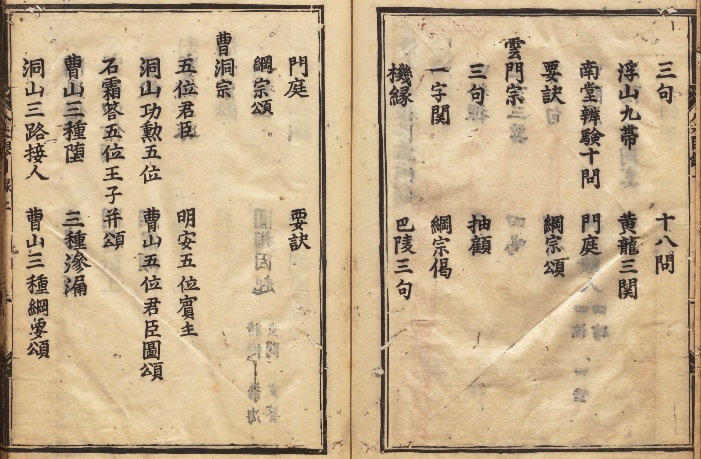 三句　十八問
浮山九帶　黄龍三関
南堂辨驗十問　門庭
要訣　綱宗頌
雲門宗
三句　抽顧
一字関　綱宗偈
機縁　巴陵三句
門庭　要訣
綱宗頌
曹洞宗
五位君臣　明安五位賔主
洞山功勲五位　曹山五位君臣圖頌
石霜答五位王子并頌
曹山三種堕　三種滲漏
洞山三路接人　曹山三種綱要頌